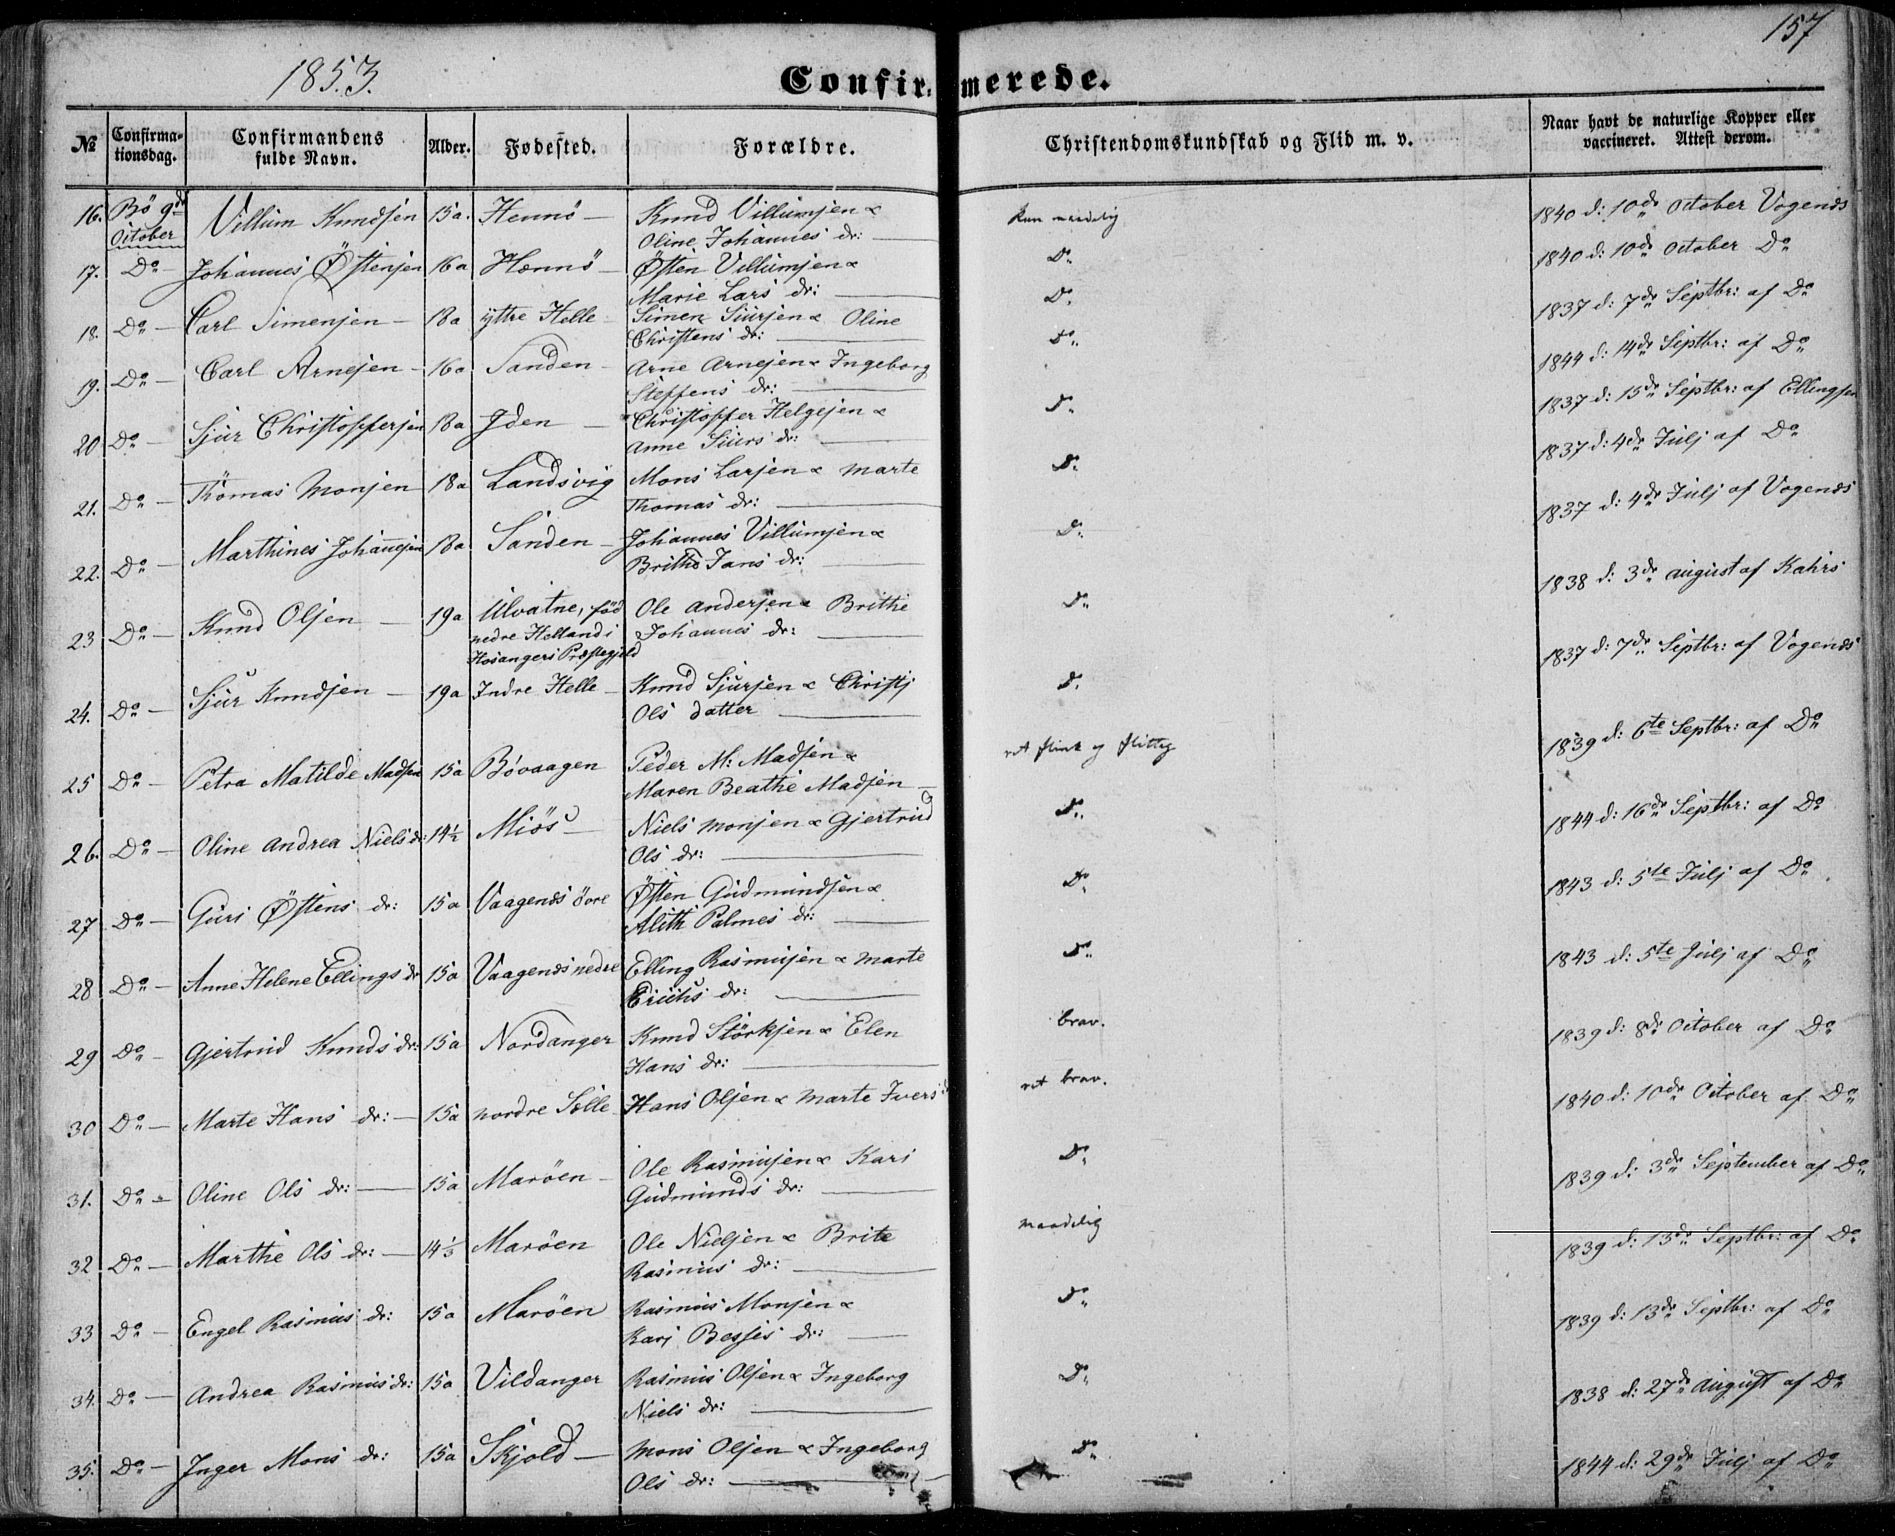 157
1853.
Confirmerede.
№ Confirmationsdag. Confirmandens fulde Navn. Alder. Fødested. Forældre. Christendomskundskab og Flid m. v. Naar havt de naturlige Kopper eller vaccineret. Attest derom.
16. Bö 9de October Villum Knudsen 15a. Hennö — Knud Villumsen & Kun maadelig 1840 d: 10de October Vogenæs
Oline Johannes dr: —
17. Do — Johannes Østensen 16a Hennö — Østen Villumsen & Do 1840 d: 10de October Do
Marie Lars dr: —
18. Do — Carl Simensen — 18a yttre Helle Simen Siursen & Oline Do 1837 d: 7de Septbr: af Do
Christens dr: —
19. Do — Carl Arnesen — 16a Sanden — Arne Arnesen & Ingeborg Do 1844 d: 14de Septbr: af Do
Steffens dr: —
20 Do — Sjur Christoffersen 18a Iden — Christoffer Helgesen & Do 1837 d: 15de Septbr: af Ellingsen
Anne Siurs dr: —
21. Do — Thomas Monsen 18a Landsvig Mons Larsen & Marte Do 1837 d: 4de Julj af Do
Thomas dr: —
22. Do — Marthines Johannesen 18a Sanden — Johannes Villumsen & Do 1837 d: 4de Julj af Vogenæs
Brithe Jans dr: —
23 Do — Knud Olsen — 19a Ulvatne, fød Ole Andersen & Brithe Do 1838 d: 3de august af Kahrs
nedre Helland i Johannes dr: —
Hosangers Præstegjeld
24. Do — Sjur Knudsen — 19a Indre Helle — Knud Sjursen & Christj Do 1837 d: 7de Septbr: af Vogenæs
Ols datter —
25 Do — Petra Matilde Madsen 15a Bövaagen Peder M: Madsen & ret flink og flittig 1839 d: 6te Septbr: af Do
Maren Beathe Madsen —
26. Do — Oline Andrea Niels dr: 14½ Miös — Niels Monsen & Gjertrud Do 1844 d: 16de Septbr: af Do
Ols dr: —
27 Do — Guri Østens dr: 15a Vaagenæs övre Østen Gudmundsen & Do 1843 d: 5te Julj af Do
Alith Palmes dr: —
28 Do — Anne Helene Ellings dr 15a Vaagenæs nedre Elling Rasmusen & Marte Do 1843 d: 5te Julj af Do
Erichs dr: —
29 Do — Gjertrud Knuds dr: 15a Nordanger Knud Störksen & Elen brav. 1839 d: 8de October af Do
Hans dr: —
30 Do — Marte Hans dr: — 15a nordre Sille Hans Olsen & Marte Ivers d ret brav. 1840 d: 10de October af Do
31. Do — Oline Ols dr: — 15a Maröen — Ole Rasmusen & Kari Do 1839 d: 3de September af Do
Gudmunds dr: —
32 Do — Marthe Ols dr: — 14⅓ Maröen Ole Nielsen & Brite maadelig 1839 d: 13de Septbr: af Do
Rasmus dr: —
33 Do — Engel Rasmus dr: 15a Maröen Rasmus Monsen & Do 1839 d: 13de Septbr: af Do
Karj Besses dr: —
34. Do — Andrea Rasmus dr: 15a Vildanger Rasmus Olsen & Ingeborg Do 1838 d: 27de August af Do
Niels dr: —
35. Do — Inger Mons dr: 15a Skjold — Mons Olsen & Ingeborg Do 1844 d: 29de Julj af Do
Ols dr: —